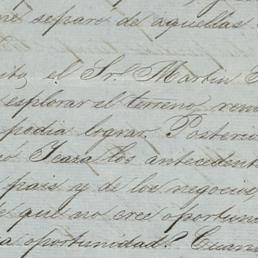 me separé de aquellas
el Sr. Martin
explorar el terreno,
podia lograr.
Icaza los antecedent
pais y de los negocios,
que no cree oportun
oportunidad? Cuan